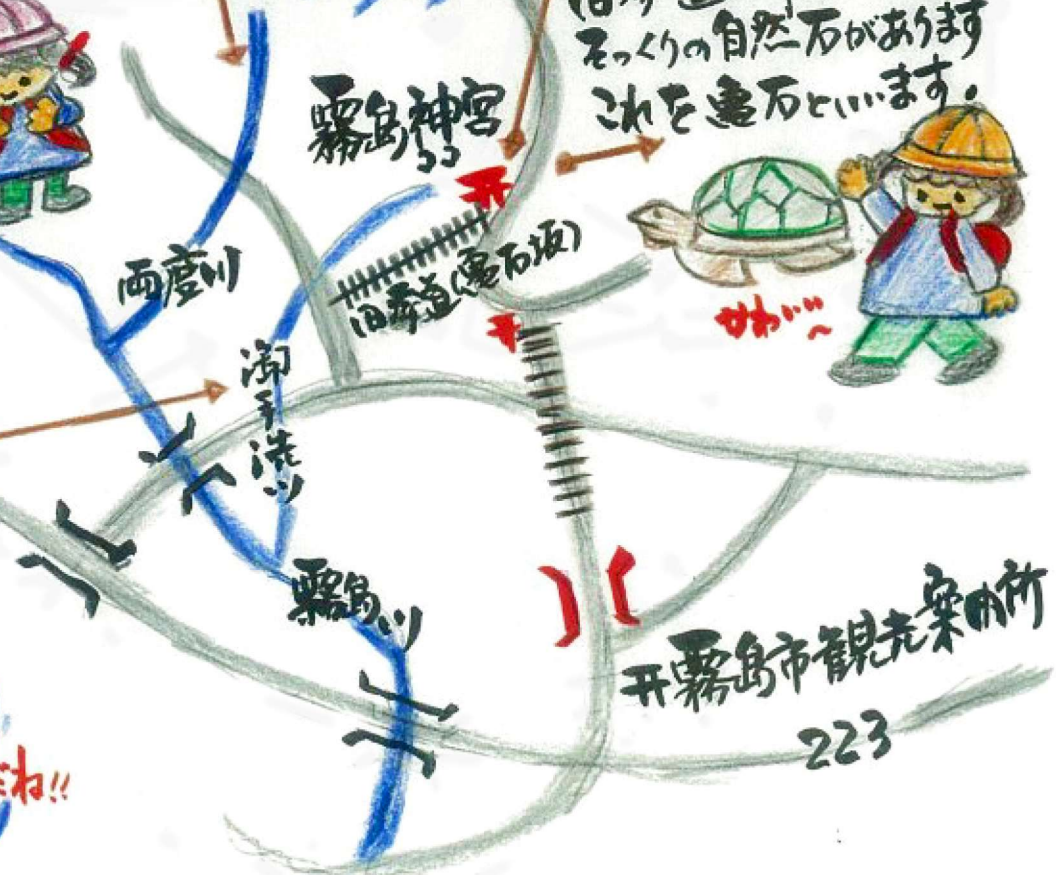 そっくりの自然石があります
これを亀石といいます。
霧島神宮
旧参道(亀石坂)
両度川
かわいい〜
御手洗川
霧島川
霧島市観光案内所
223
だね!!